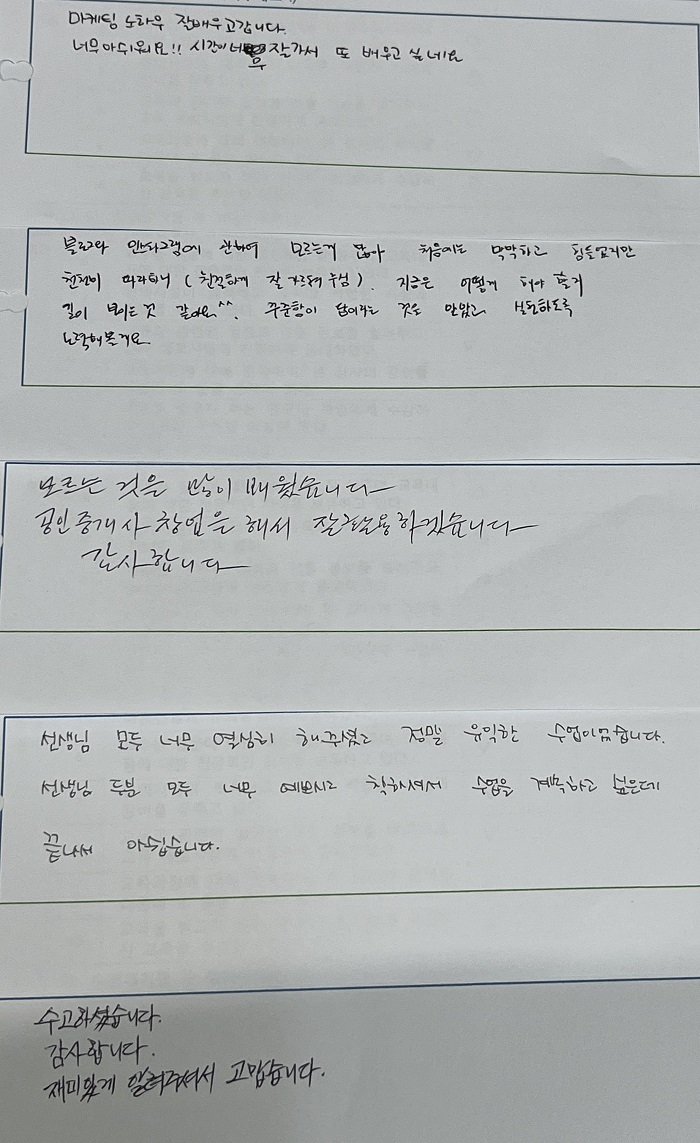 마케팅 노하우 잘배우고갑니다.
너무아쉬워요!! 시간이 너무 잘가서 또 배우고 싶네요
블로그와 인스타그램에 관하여 모르는게 많아 처음에는 막막하고 힘들었지만
천천히 따라하니 (친절하게 잘 가르쳐 주심). 지금은 어떻게 해야 할지
길이 보이는것 같아요^^. 꾸준함이 답이라는 것을 알았고 실천하도록
노력해볼게요.
모르는 것을 많이 배웠습니다
공인중개사 창업을 해서 잘활용하겠습니다
감사합니다
선생님 모두 너무 열심히 해주셨고 정말 유익한 수업이었습니다.
선생님 두분 모두 너무 예쁘시고 착하셔서 수업을 계속하고 싶은데
끝나서 아쉽습니다.
수고하셨습니다.
감사합니다.
재미있게 알려주셔서 고맙습니다.